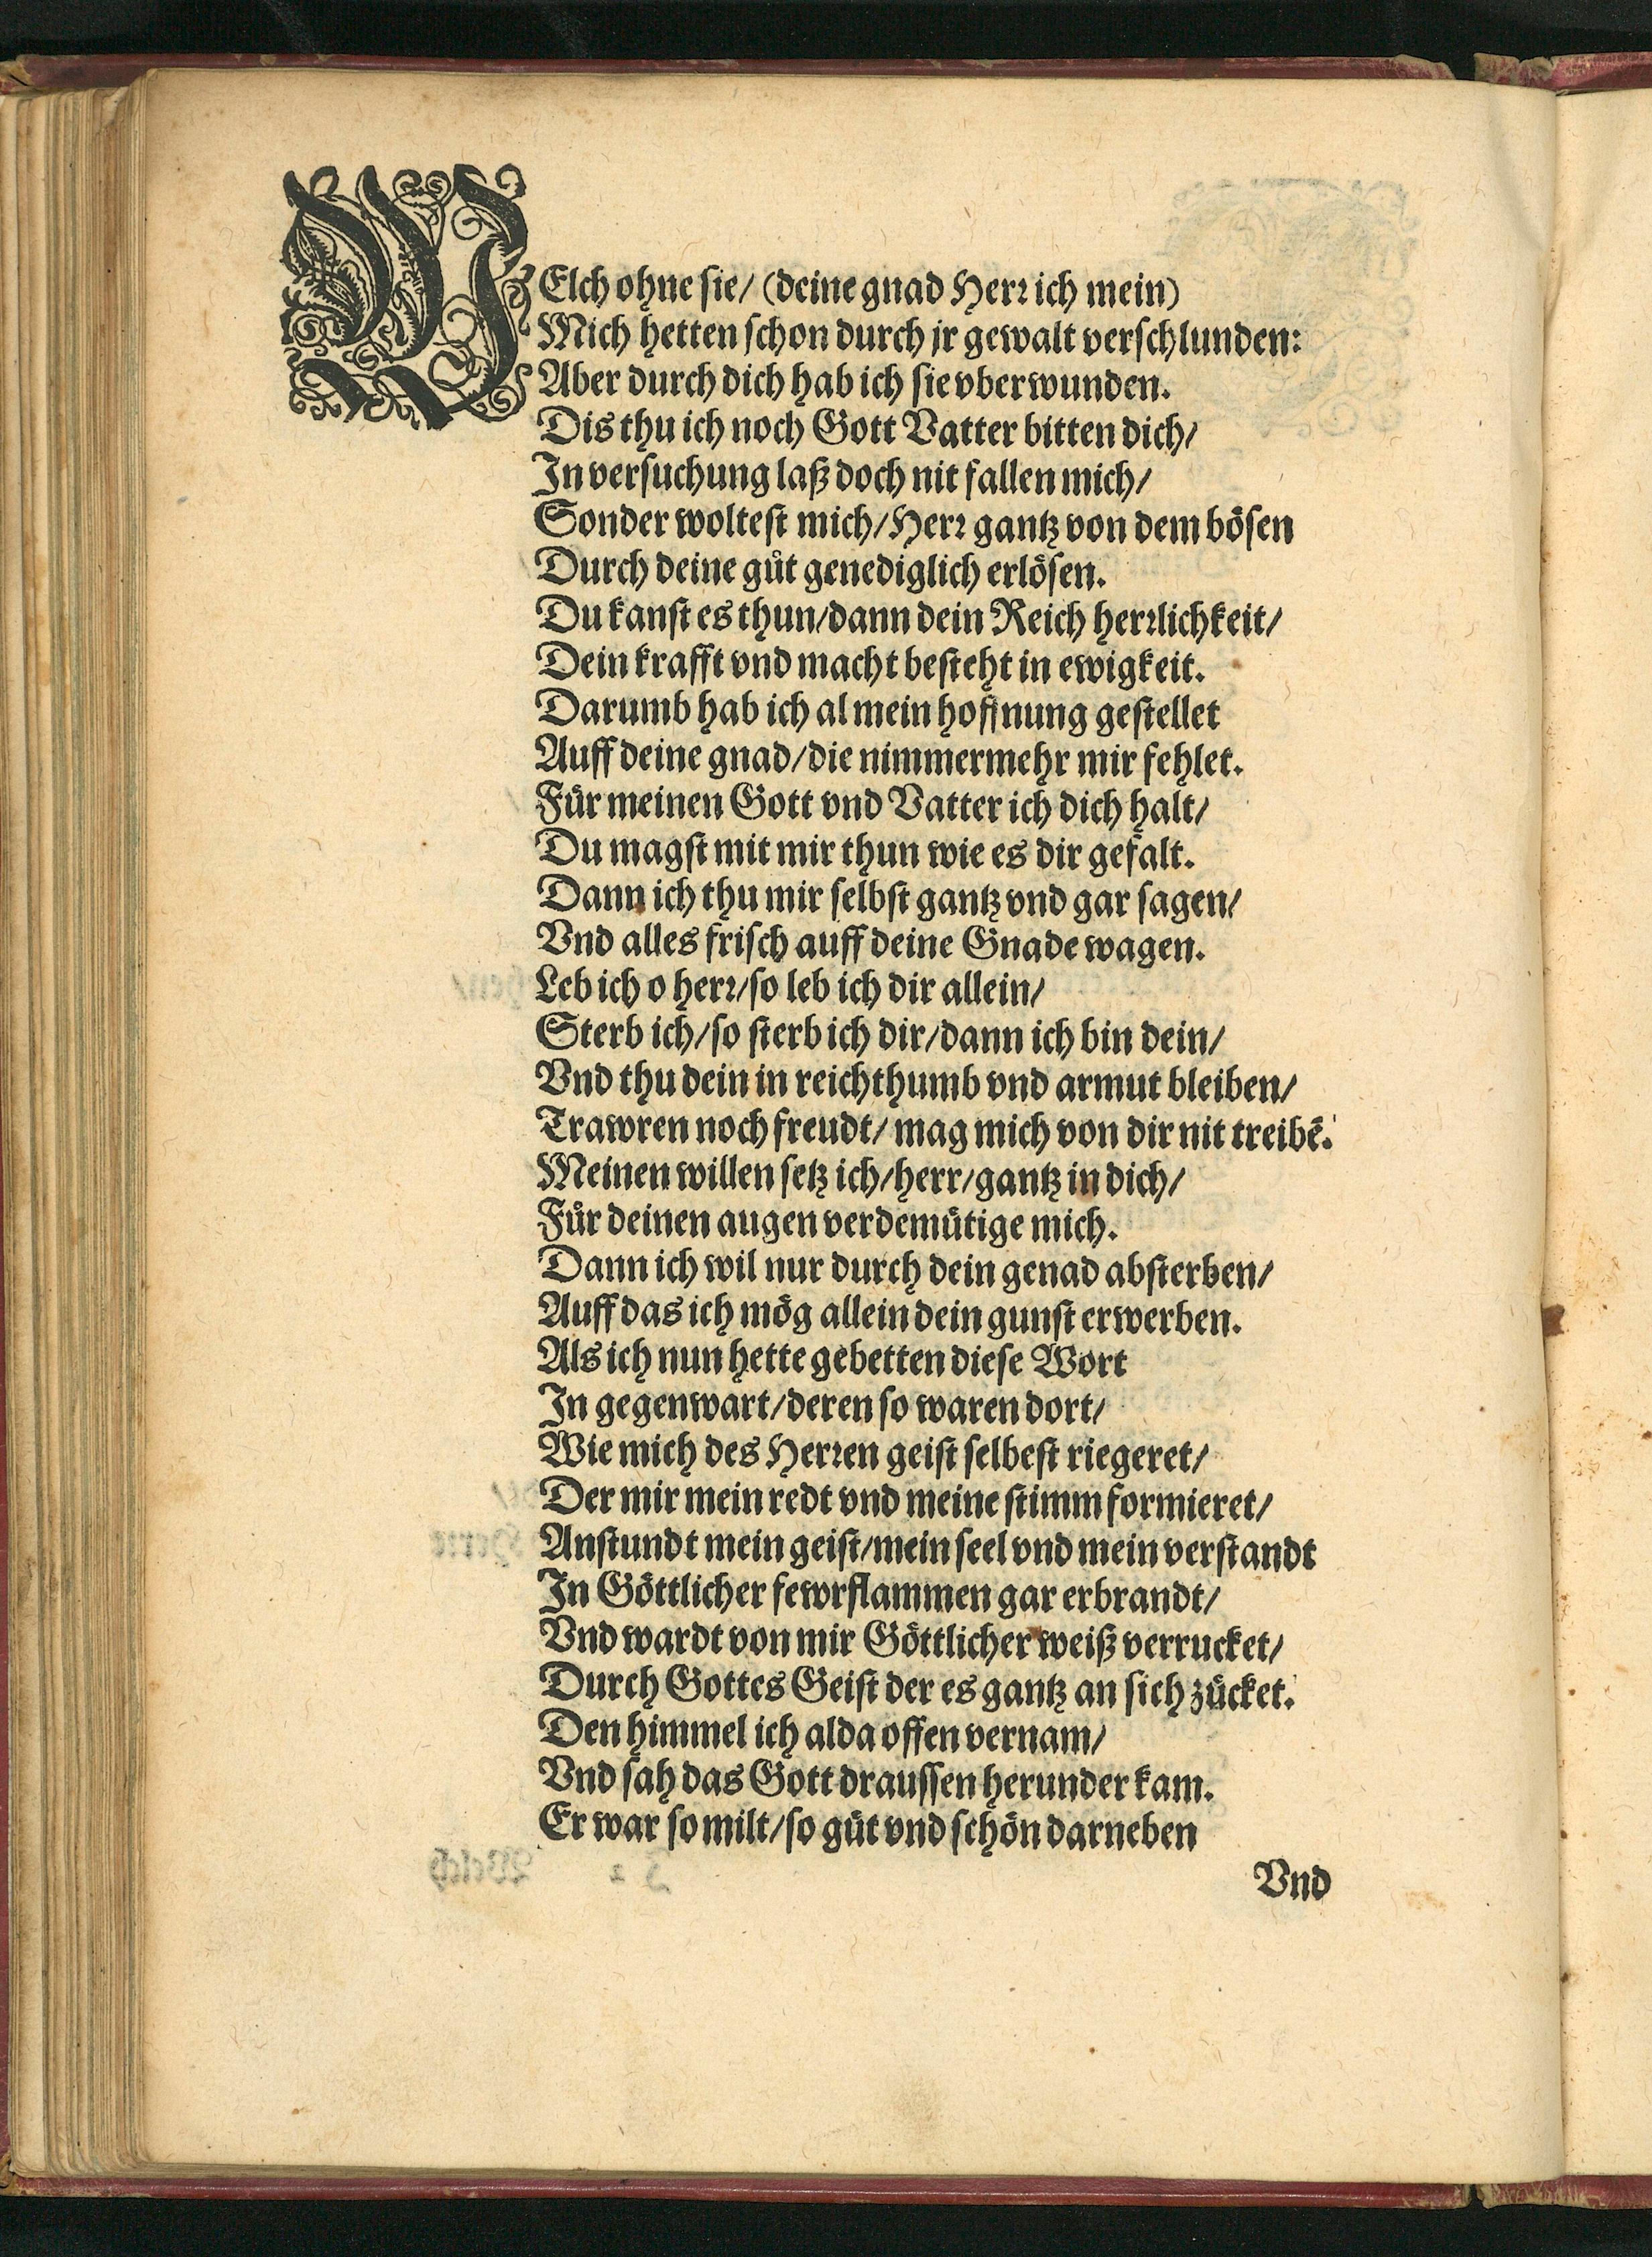 WElch ohne sie/ (deine gnad Herr ich mein)
Mich hetten schon durch jr gewalt verschlunden:
Aber durch dich hab ich sie vberwunden.
Dis thu ich noch Gott Vatter bitten dich/
In versuchung laß doch nit fallen mich/
Sonder woltest mich/ Herr gantz von dem bösen
Durch deine güt genediglich erlösen.
Du kanst es thun/ dann dein Reich herrlichkeit/
Dein krafft vnd macht besteht in ewigkeit.
Darumb hab ich al mein hoffnung gestellet
Auff deine gnad/ die nimmermehr mir fehlet.
Für meinen Gott vnd Vatter ich dich halt/
Du magst mit mir thun wie es dir gefalt.
Dann ich thu mir selbst gantz vnd gar sagen/
Vnd alles frisch auff deine Gnade wagen.
Leb ich o herr/ so leb ich dir allein/
Sterb ich/ so sterb ich dir/ dann ich bin dein/
Vnd thu dein in reichthumb vnd armut bleiben/
Trawren noch freudt/ mag mich von dir nit treibē.
Meinen willen setz ich/ herr/ gantz in dich/
Für deinen augen verdemütige mich.
Dann ich wil nur durch dein genad absterben/
Auff das ich mög allein dein gunst erwerben.
Als ich nun hette gebetten diese Wort
In gegenwart/ deren so waren dort/
Wie mich des Herren geist selbest riegeret/
Der mir mein redt vnd meine stimm formieret/
Anstundt mein geist/ mein seel vnd mein verstandt
In Göttlicher fewrflammen gar erbrandt/
Vnd wardt von mir Göttlicher weiß verrucket/
Durch Gottes Geist der es gantz an sich zücket.
Den himmel ich alda offen vernam/
Vnd sah das Gott draussen herunder kam.
Er war so milt/ so güt vnd schön darneben
Vnd